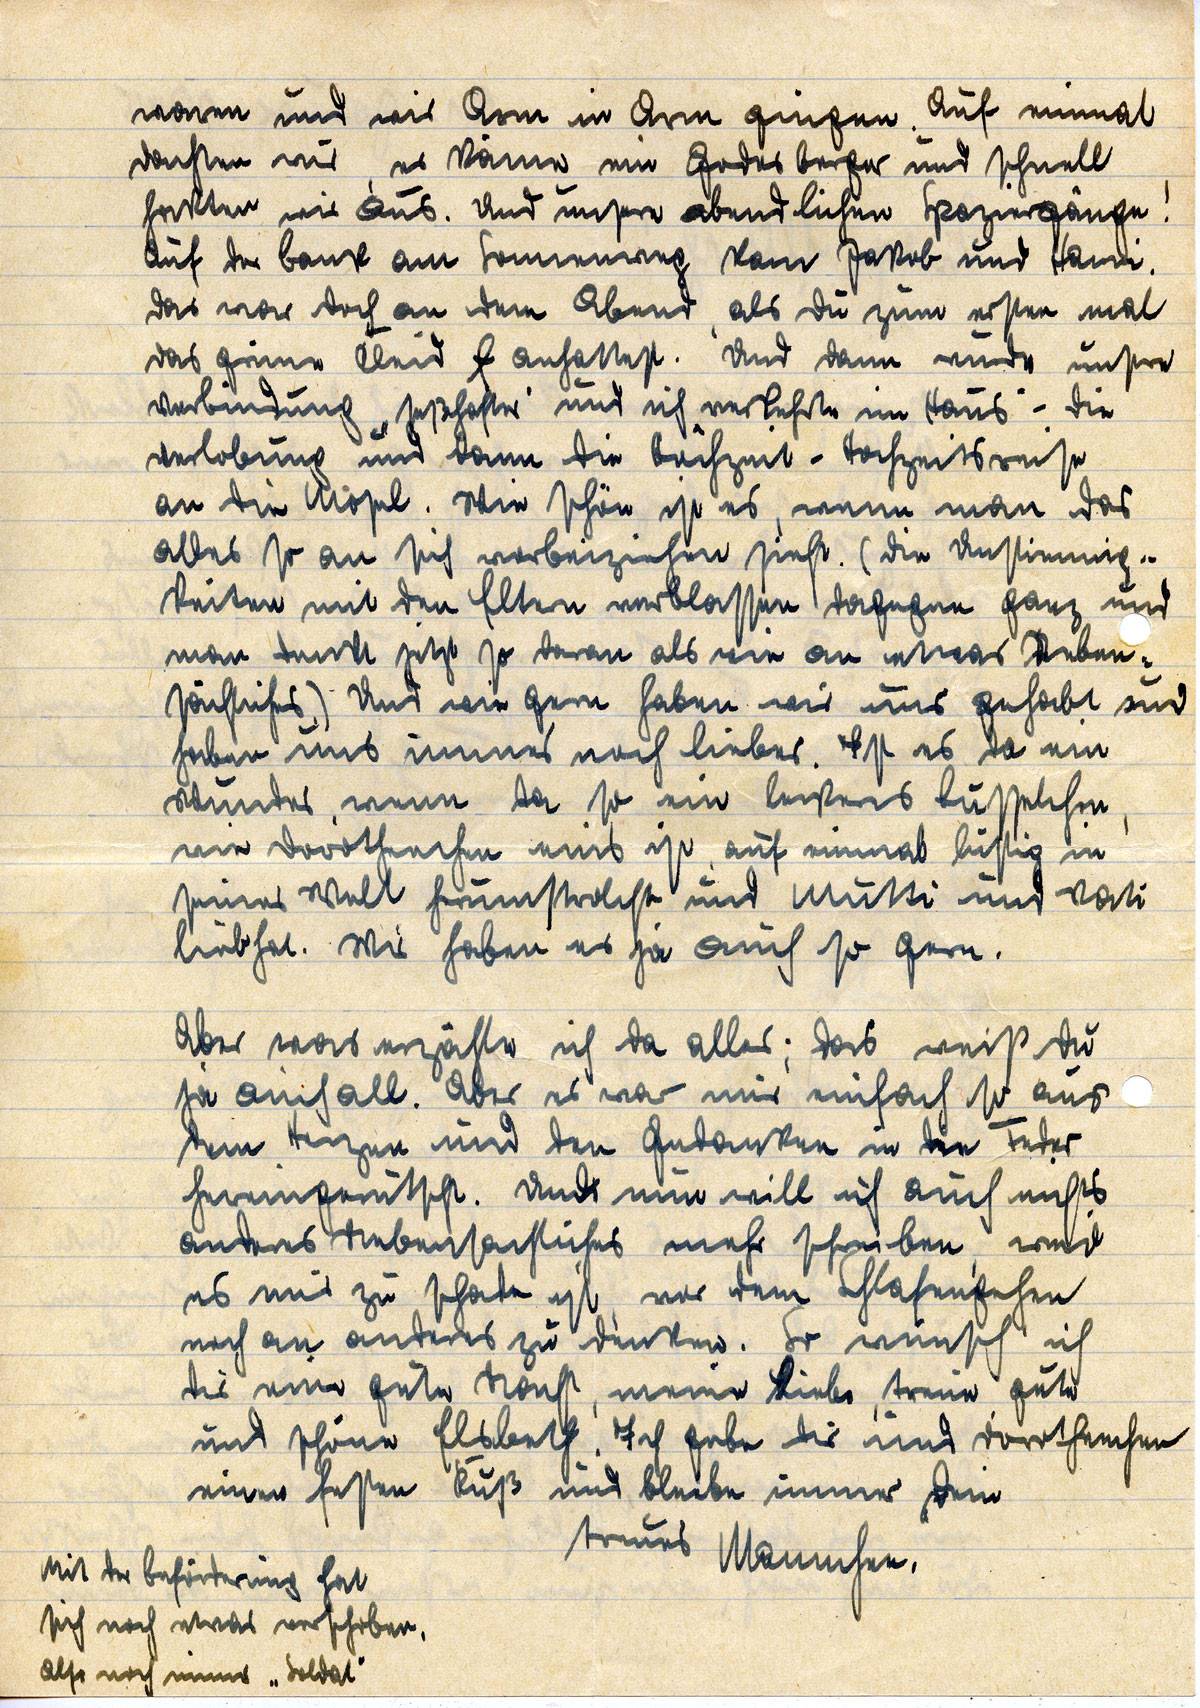 waren und wir Arm in Arm gingen. Auf einmal
dachten wir, es käme ein Godesberger und schnell
hakten wir aus. Und unsere abendlichen Spaziergänge!
Auf der Bank am Sonnenweg kam Jakob und Hanni.
Das war doch an dem Abend, als Du zum ersten mal
das grüne Kleid anhattest. Und dann wurde unsre
Verbindung „seßhafter" und ich „verkehrte im Haus" - die
Verlobung und dann die Hochzeit - Hochzeitsreise
an die Mosel. Wie schön ist es, wenn man das
alles so an sich vorbeiziehen sieht. (Die Unstimmig-
keiten mit den Eltern verblassen dagegen ganz und
man denkt jetzt so daran als wie an etwas Neben-
sächliches.) Und wie gern haben wir uns gehabt und
haben uns immer noch lieber. Ist es da ein
Wunder, wenn da so ein leckeres Dusselchen,
wie Dorotheechen eins ist, auf einmal lustig in
seiner Welt herumstrolcht und Mutti und Vati
liebhat. Wir haben es ja auch so gern.
Aber was erzähle ich da alles; das weißt Du
ja auch all. Aber es war mir einfach so aus
dem Herzen und den Gedanken in die Feder
hereingerutscht. Und nun will ich auch nichts
anderes Nebensächliches mehr schreiben, weil
es mir zu schade ist, vor dem Schlafengehen
noch an anderes zu denken. So wünsch ich
Dir eine gute Nacht, meine liebe, treue, gute
und schöne Elsbeth. Ich gebe Dir und Dorotheechen
einen festen Kuß und bleibe immer Dein
treues Männchen.
Mit der Beförderung hat
sich noch etwas verschoben.
Also noch immer „Soldat"